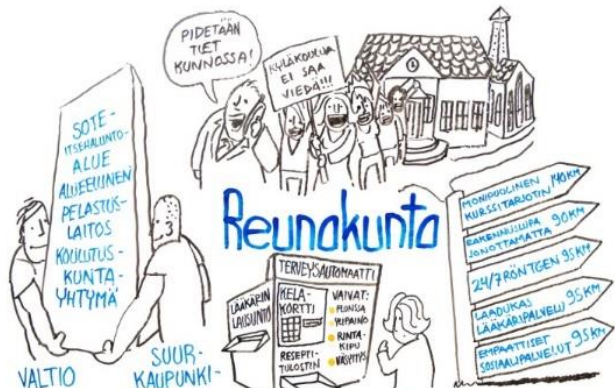 PIDETÄÄN
TIET
KUNNOSSA!
KYLÄKOULUA
EI SAA
VIEDÄ!!!
SOTE-
ITSEHALLINTO-
ALUE
ALUEELLINEN
PELASTUS-
LAITOS
KOULUTUS-
KUNTA-
YHTYMÄ
VALTIO
SUUR-
KAUPUNKI-
Reunakunta
TERVEYSAUTOMAATTI
LÄÄKÄRIN
LAUSUNTO
KELA-
KORTTI
RESEPTI-
TULOSTIN
VAIVAT:
FLUNSSA
YLIPAINO
RINTA-
KIPU
VÄSYMYS
MONIPUOLINEN
KURSSITARJOTIN
140KM
RAKENNUSLUPA
JONOTTAMATTA
90KM
24/7 RÖNTGEN 95KM
LAADUKAS
LÄÄKÄRIPALVELU
95KM
EMPAATTISET
SOSIAALIPALVELUT
95KM